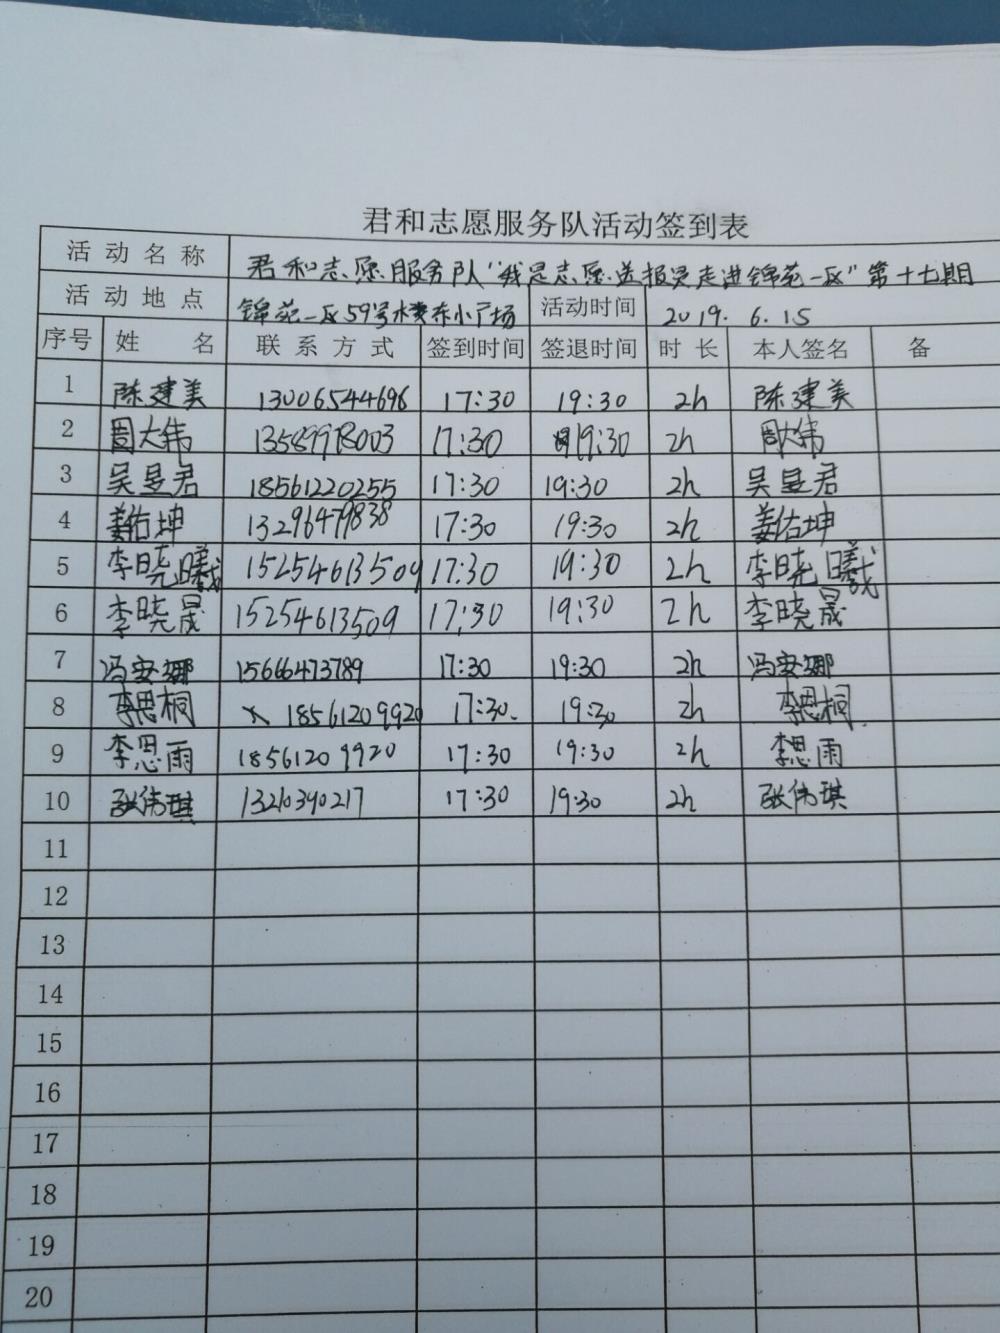 君和志愿服务队活动签到表
活动名称 君和志愿服务队“我是志愿送报员走进锦苑一区”第十七期
活动地点 锦苑一区59号楼东小广场 活动时间 2019.6.15
序号 姓名 联系方式 签到时间 签退时间 时长 本人签名 备
1 陈建美 13006544696 17:30 19:30 2h 陈建美
2 周大伟 13589978003 17:30 19:30 2h 周大伟
3 吴昱君 18561220255 17:30 19:30 2h 吴昱君
4 姜佑坤 13296479838 17:30 19:30 2h 姜佑坤
5 李晓曦 15254613509 17:30 19:30 2h 李晓曦
6 李晓晟 15254613509 17:30 19:30 2h 李晓晟
7 冯安娜 15666473789 17:30 19:30 2h 冯安娜
8 李思桐 18561209920 17:30 19:30 2h 李思桐
9 李思雨 18561209920 17:30 19:30 2h 李思雨
10 张伟琪 13210390217 17:30 19:30 2h 张伟琪
11
12
13
14
15
16
17
18
19
20